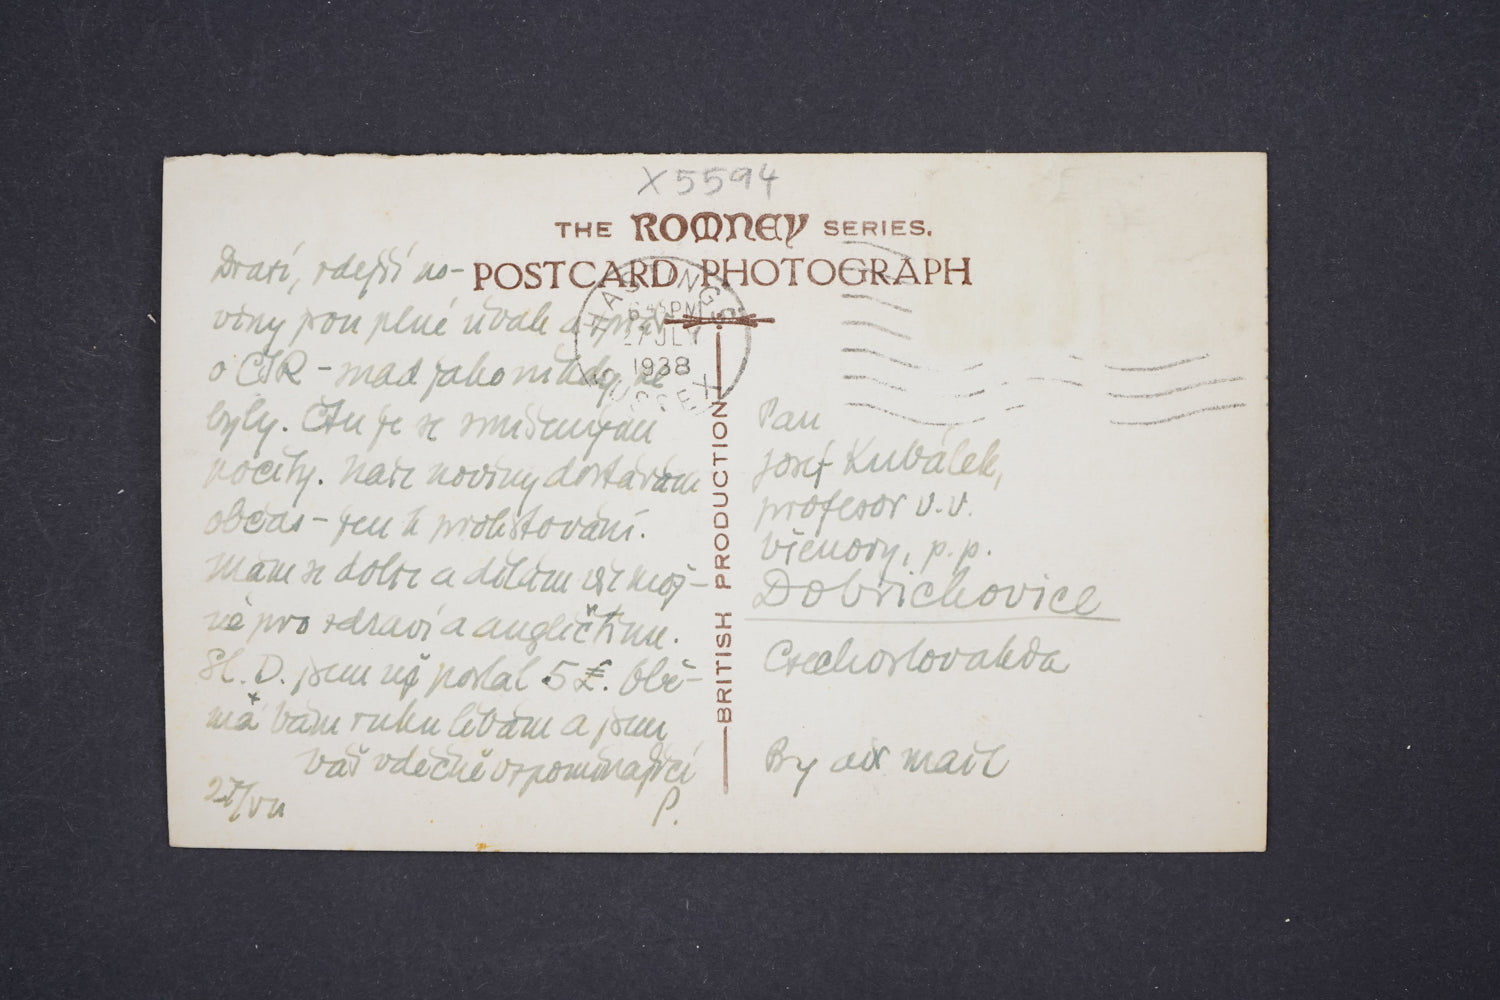 X 5594
THE ROMNEY SERIES.
POSTCARD PHOTOGRAPH
HASTINGS
6 45 PM
27 JLY
1938
SUSSEX
BRITISH PRODUCTION
Drazí, zdejší no-
viny jsou plné úvah a zpráv
o ČSR – snad jako nikdy ne
byly. Čtu je se smíšenými
pocity. Naše noviny dostávám
občas – jen k prolistování.
Mám se dobře a dělám vše mož-
né pro zdraví a angličtinu.
Sl. D. jsem už poslal 5 £. Obě-
ma Vám ruku líbám a jsem
Váš vděčně vzpomínající
P.
27/VII
Pan
Josef Kubálek,
profesor v.v.
Všenory, p.p.
Dobřichovice
Czechoslovakia
By air mail